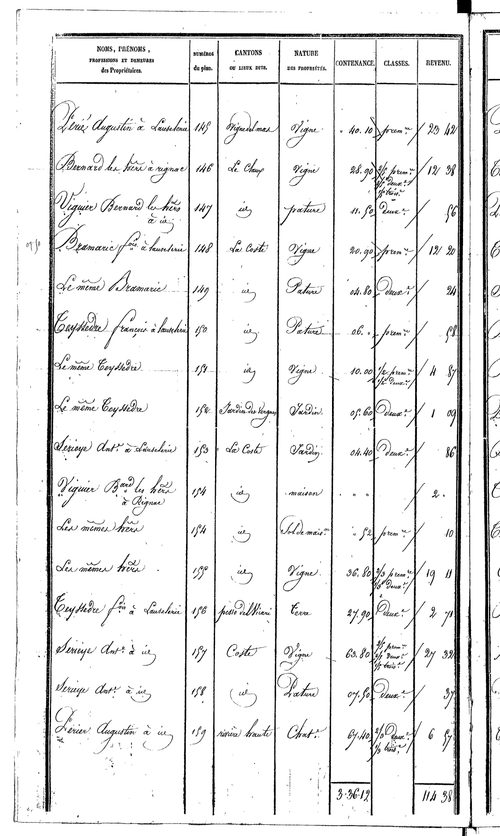 NOMS, PRÉNOMS, PROFESSIONS ET DEMEURES des Propriétaires. | NUMÉROS du plan. | CANTONS OU LIEUX DITS. | NATURE DES PROPRIÉTÉS. | CONTENANCE. | CLASSES. | REVENU.
Périé Augustin à Lauselerie 145 Vigne 40.10 prem.re 23 42
Bernard les hérs à rignac 146 Le Claux Vigne 28.90 prem.re deux.e trois.e 12 38
Viguier Bernard les hérs à id 147 id pature 11.50 Deux.e 56
Bramarie fois à lauselerie 148 La Coste Vigne 20.90 prem.re 12 20
Le même Bramarie 149 id Pature 04.80 Deux.e 24
Teyssedre françois à lauselerie 150 id Pature 06. prem.re 58
Le même Teyssedre 151 id Vigne 10.00 1/2 prem.re 1/2 deux.e 4 87
Le même Teyssedre 152 Jardin des Vergnes Jardin 05.60 Deux.e 1 09
Serieye Ant.e à Lauselerie 153 La Coste Jardin 04.40 Deux.e 86
Viguier B.ard les hérs à Rignac 154 id maison 2
Les mêmes hérs 154 id Sol de mais.on 52 prem.re 10
Les mêmes hérs 155 id Vigne 36.80 2/3 prem.re 1/3 deux.e 19 11
Teyssedre fois à Lauselerie 156 Terre 27.90 Deux.e 2 71
Serieye Ant.e à id 157 Coste Vigne 63.80 prem.re deux.e trois.e 27 32
Serieye Ant.e à id 158 id Pature 07.50 Deux.e 37
Périer Augustin à id 159 rivière haute Chat.e 67.40 2/3 Deux.e 1/3 trois.e 6 57
3.36.12 114 38